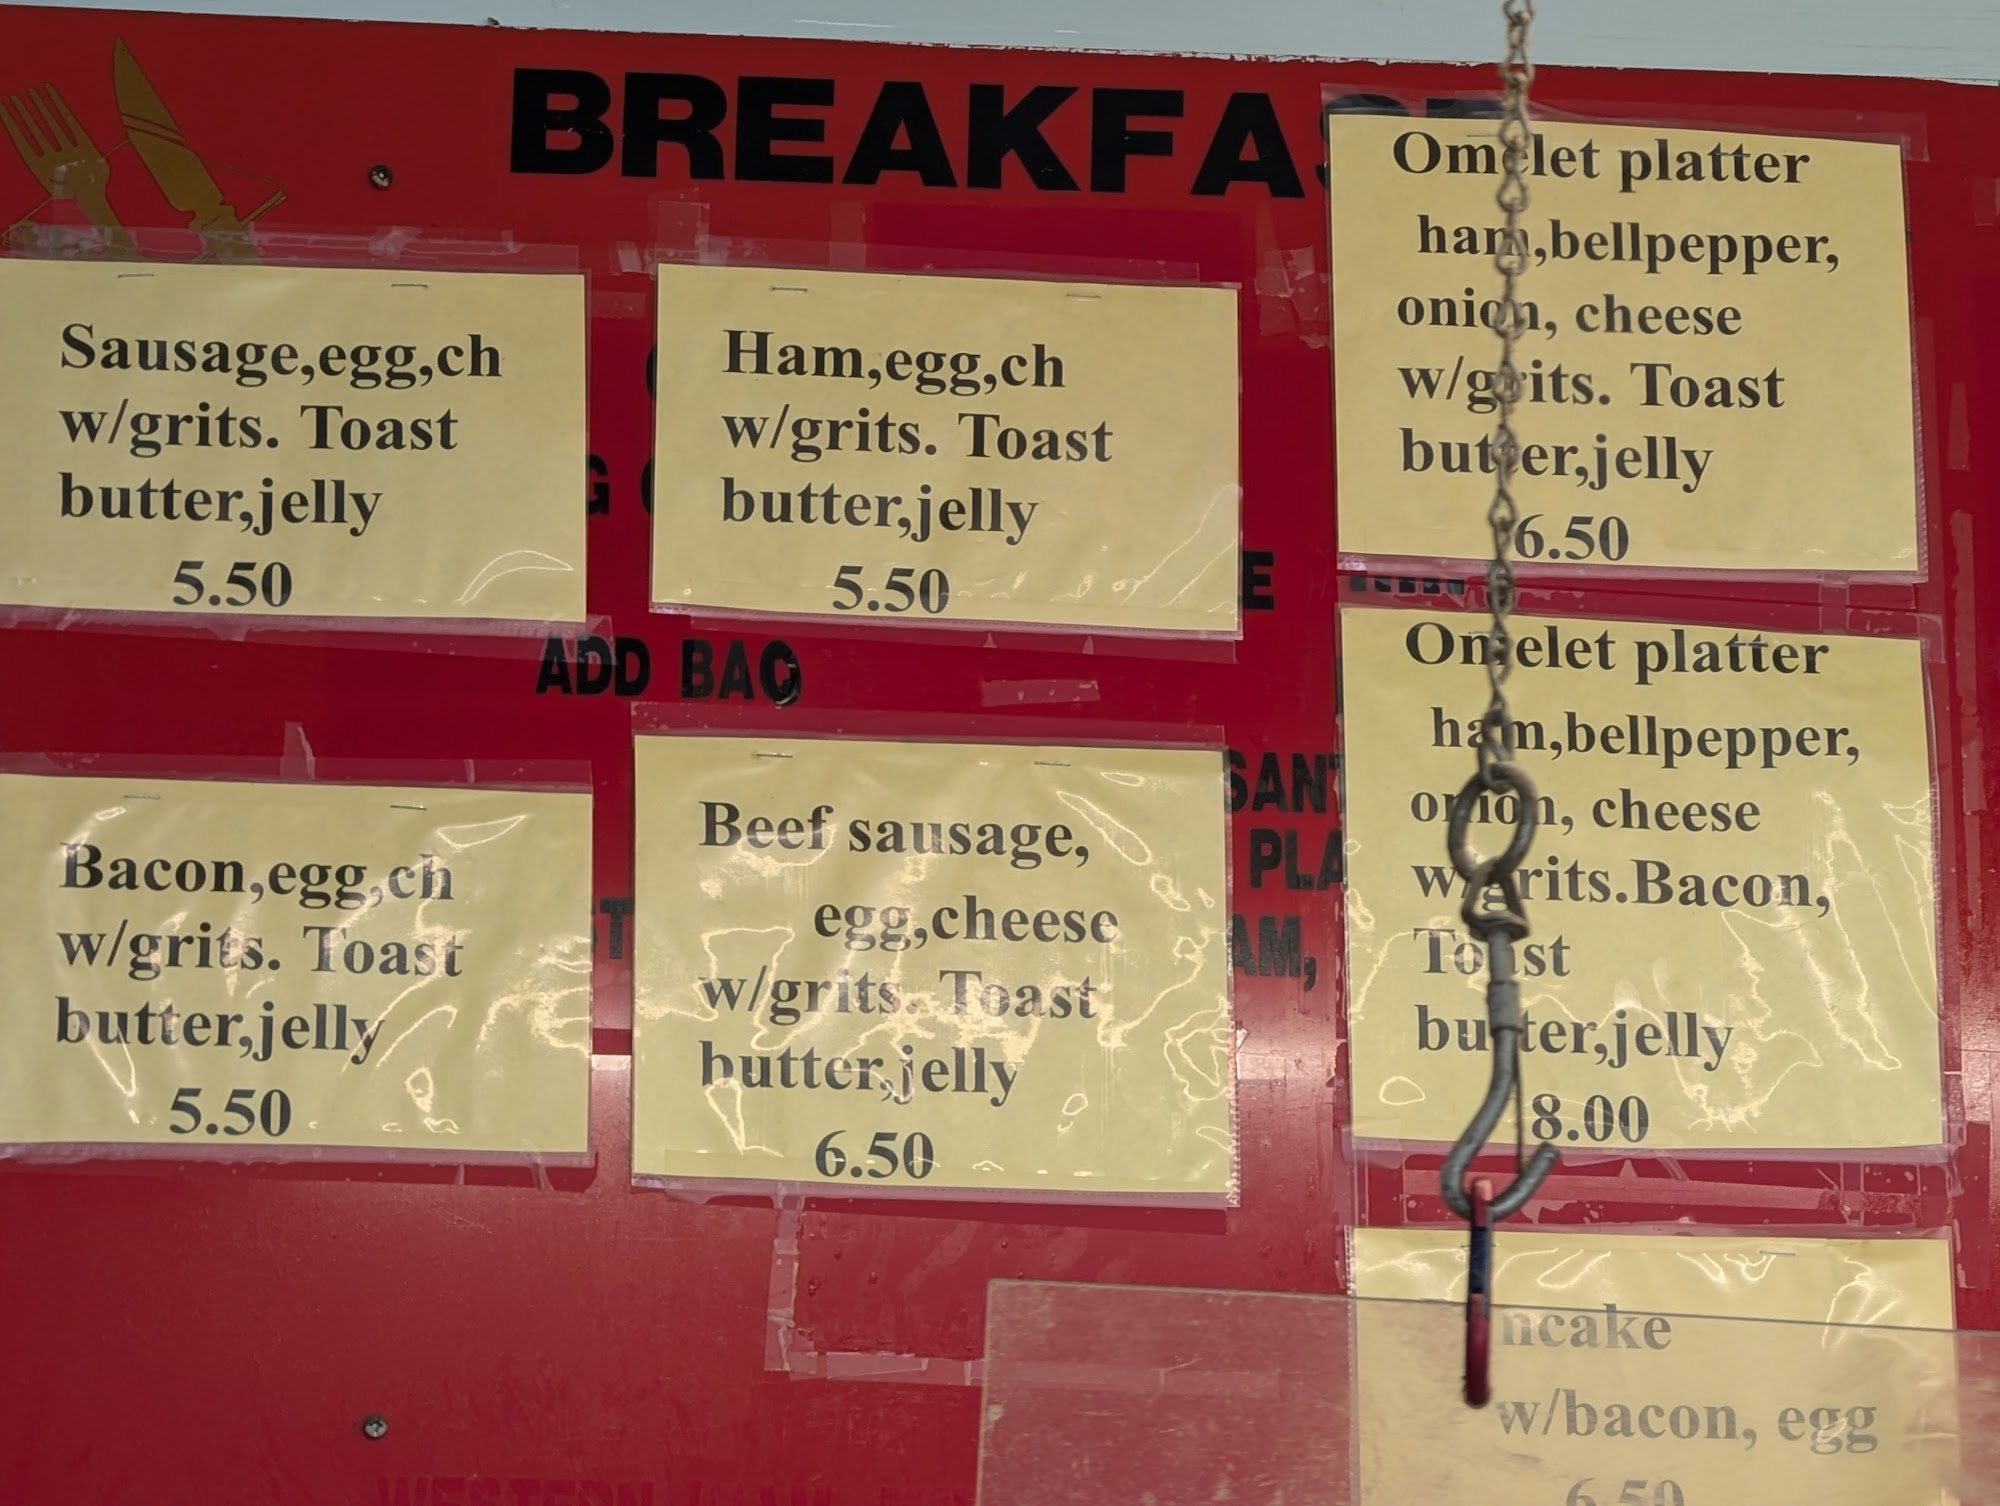 BREAKFA
Sausage,egg,ch
w/grits. Toast
butter,jelly
5.50
Ham,egg,ch
w/grits. Toast
butter,jelly
5.50
Omelet platter
ham,bellpepper,
onion, cheese
w/grits. Toast
butter,jelly
6.50
ADD BACO
Bacon,egg,ch
w/grits. Toast
butter,jelly
5.50
Beef sausage,
egg,cheese
w/grits. Toast
butter,jelly
6.50
SANT
PLA
AM,
Omelet platter
ham,bellpepper,
onion, cheese
w/grits.Bacon,
Toast
butter,jelly
8.00
ncake
w/bacon, egg
6.50